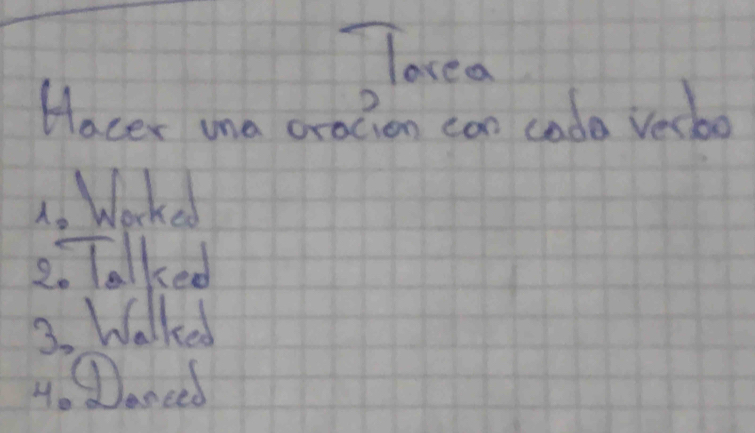 Tarea
Hacer una oración con cada verbo
1. Worked
2. Talked
3. Walked
4. Danced